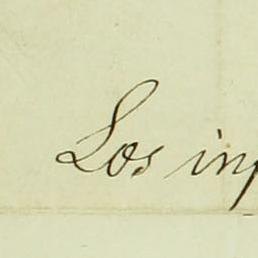 Los inf